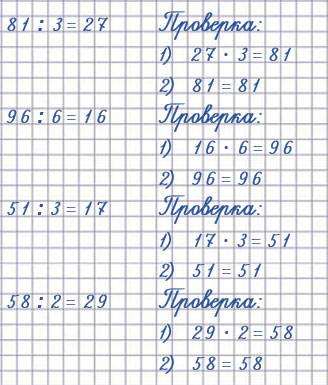 81 : 3 = 27 Проверка:
1) 27 · 3 = 81
2) 81 = 81
96 : 6 = 16 Проверка:
1) 16 · 6 = 96
2) 96 = 96
51 : 3 = 17 Проверка:
1) 17 · 3 = 51
2) 51 = 51
58 : 2 = 29 Проверка:
1) 29 · 2 = 58
2) 58 = 58